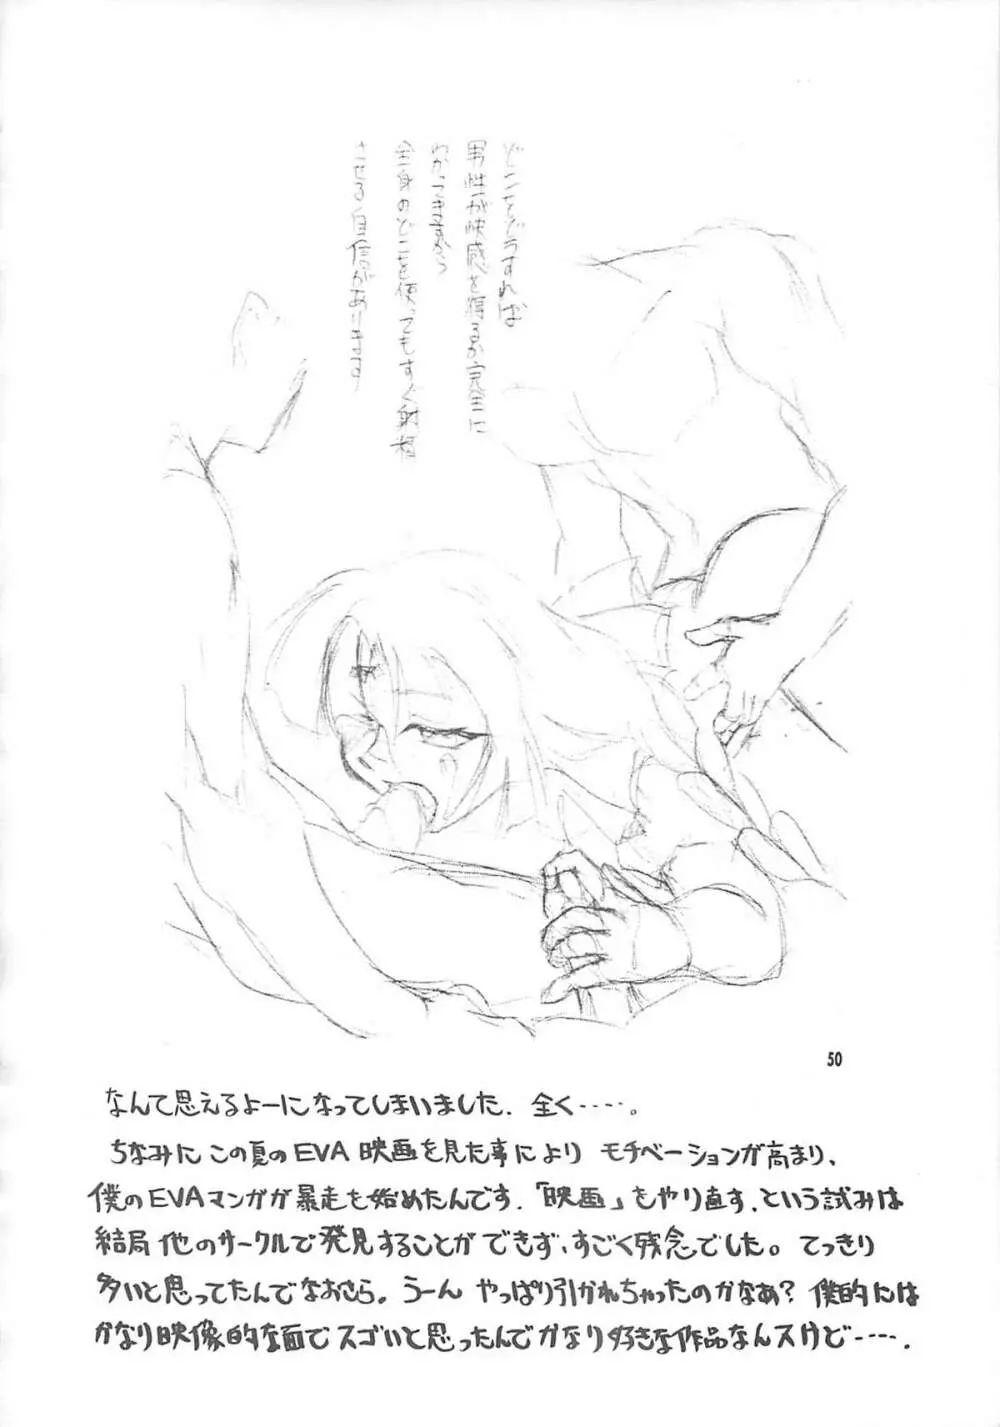 どこをどうすれば
男性が快感を得るか完全に
わかってきますから
全身のどこを使ってもすぐ射精
させる自信があります
50
なんて思えるよーになってしまいました. 全く‥‥‥。
ちなみに この夏のEVA 映画を見た事により モチベーションが高まり、
僕のEVAマンガが暴走を始めたんです.「映画」もやり直す、という試みは
結局 他のサークルで発見することができず、すごく残念でした。てっきり
多いと思ってたんでなおさら。うーん やっぱり引かれちゃったのかなあ? 僕的には
かなり映像的な面でスゴいと思ったんでかなり好きな作品なんスけど‥‥‥.